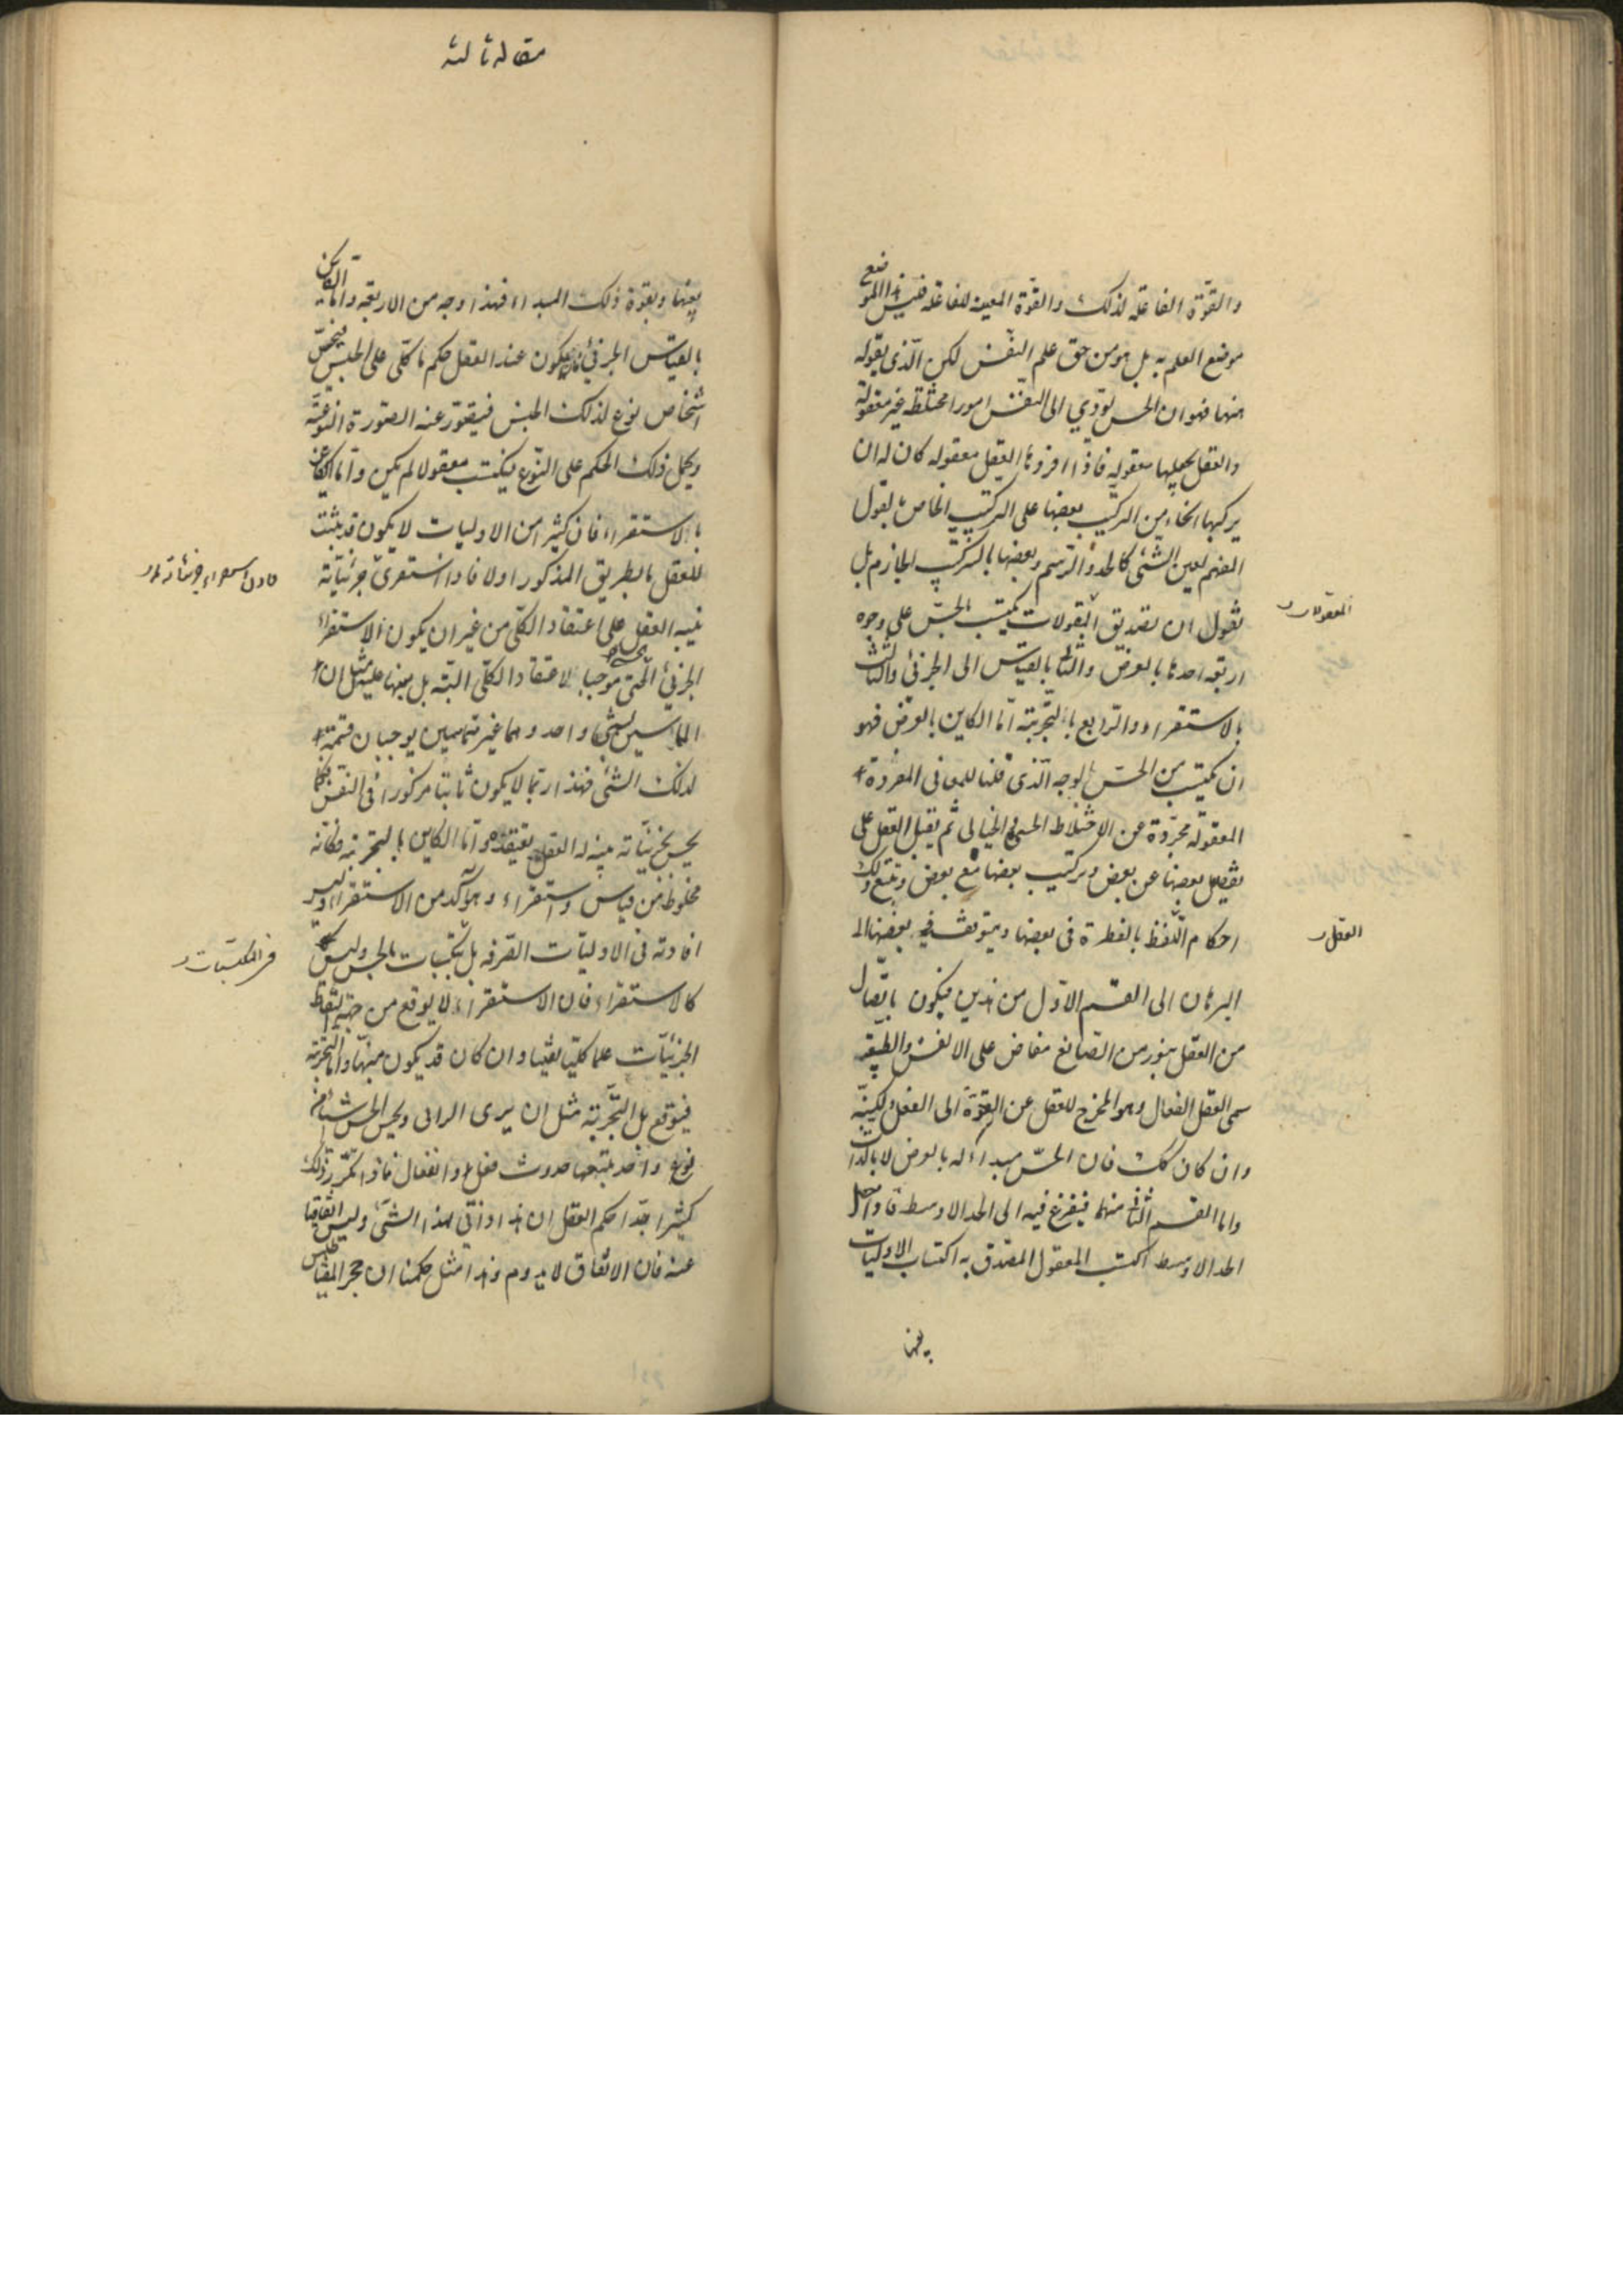 والقوّة الفاعلة لذلك والقوّة المعينة للفاعلة فليس هذا الموضع
موضع العلم به بل هو من حق علم النفس لكن الّذي نقوله
منها فهو ان الحس يؤدي الى النفس امورا مختلطة غير معقولة
والعقل يجعلها معقولة فاذا افرزها العقل معقولة كان له ان
يركبها انحاء من التركيب بعضها على التركيب الخاص بقول
المفهم لعين الشئ كالحد والرسم وبعضها بالتركيب الجازم بل
نقول ان تصديق المقولات يكتسب بالحسّ على وجوه
المعقولات
اربعة احدها بالعرض والثاني بالقياس الى الجزئي والثالث
بالاستقراء والرابع بالتجربة امّا الكاين بالعرض فهو
ان يكتسب من الحسّ بالوجه الّذي قلنا للمعاني المفردة
المعقولة مجرّدة عن الاختلاط الحسي الخيالي ثم يقبل العقل على
تفصيل بعضها عن بعض وتركيب بعضها مع بعض ويتبع ذلك
احكام اللّفظ بالفطرة في بعضها ويتوقف في بعضها الى
العقل
البرهان الى القسم الاوّل من هذين فيكون باتّصال
من العقل بنور من الصّانع مفاض على الانفس والطبيعة
يسمى العقل الفعال وهو المخرج للعقل عن القوّة الى الفعل لكنّه
وان كان كك فان الحسّ مبدأ له بالعرض لا بالذات
واما القسم الثاني منهما فيفزع فيه الى الحد الاوسط فاذا حصل
الحد الاوسط اكتسب المعقول المصدق به اكتساب الاوليات
بعينها
مقاله ثالثه
بعينها وبقوة ذلك المبدا فهذا وجه من الاربعة وامّا الكاين
بالقياس الجزئي فان يكون عند العقل حكم ما كلّي على الجنس فيحسّ
اشخاص نوع لذلك الجنس فيتصّور عنه الصّورة النّوعيّة
ويحمل ذلك الحكم على النّوع فيكتسب معقولا لم يكن وامّا الكاين
بالاستقراء فان كثيرا من الاوليات لا يكون قد تبينت
للعقل بالطريق المذكور اولا فاذا استقرئ جزئياته
تنبه العقل على اعتقاد الكلّي من غير ان يكون الاستقراء
الجزئي الحسّي موجبا لاعتقاد الكلّي البته بل منبها عليه مثل ان
المماسين لشئ واحد وهما غير متماسين يوجبان قسمة
لذلك الشئ فهذا ربّما لا يكون ثابتا مركوزا في النفس فكما
يحس بجزئيّاته يتنبه له العقل ويعتقده وامّا الكاين بالتجربة فكانّه
مخلوط من قياس واستقراء وهو آكد من الاستقراء وليس
افادته في الاوليّات الصّرفه بل بمكتسبات الحس وليس
في المكتسبات
كالاستقراء فان الاستقراء لا يوقع من جهة التقاط
الجزئيّات علما كليّا يقينيا وان كان قد يكون منبّها وامّا التّجربة
فيتوقع بل التّجربة مثل ان يرى الرائي ويحس الحس شياء من
نوع واحد يتبعها حدوث فعل وانفعال فاذا تكرّر ذلك
كثيرا جدّا حكم العقل ان هذا ذاتي لهذا الشّئ وليس اتفاقيا
عنه فان الاتفاق لا يدوم وهذا مثل حكمنا ان حجر المغناطيس